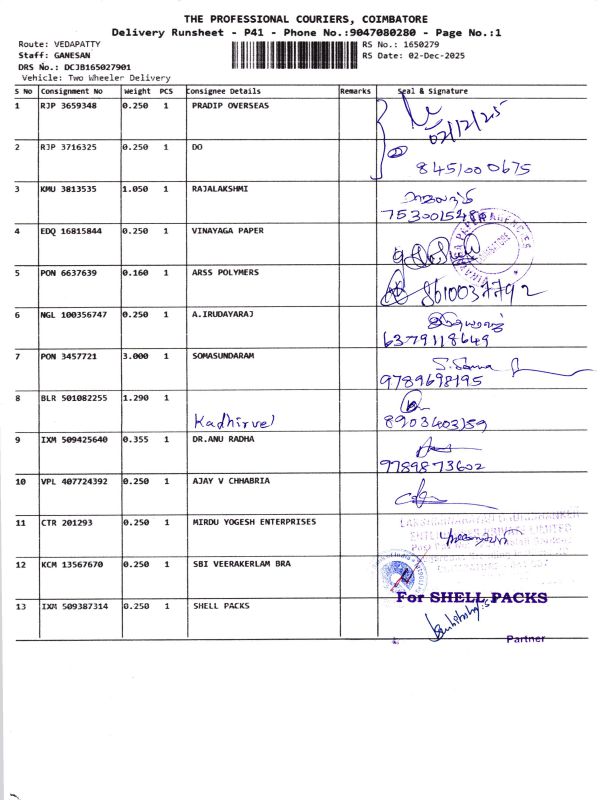 THE PROFESSIONAL COURIERS, COIMBATORE
Delivery Runsheet - P41 - Phone No.:9047080280 - Page No.:1
Route: VEDAPATTY RS No.: 1650279
Staff: GANESAN RS Date: 02-Dec-2025
DRS No.: DCJB165027901
Vehicle: Two Wheeler Delivery
S No Consignment No Weight PCS Consignee Details Remarks Seal & Signature
1 RJP 3659348 0.250 1 PRADIP OVERSEAS 02/12/25
2 RJP 3716325 0.250 1 DO 8451000675
3 KMU 3813535 1.050 1 RAJALAKSHMI
4 EDQ 16815844 0.250 1 VINAYAGA PAPER
5 PON 6637639 0.160 1 ARSS POLYMERS 8610037792
6 NGL 100356747 0.250 1 A.IRUDAYARAJ
6379118649
7 PON 3457721 3.000 1 SOMASUNDARAM
9789698195
8 BLR 501082255 1.290 1
Kadhirvel 8903403159
9 IXM 509425640 0.355 1 DR.ANU RADHA
9789873602
10 VPL 407724392 0.250 1 AJAY V CHHABRIA
11 CTR 201293 0.250 1 MIRDU YOGESH ENTERPRISES
12 KCM 13567670 0.250 1 SBI VEERAKERLAM BRA
For SHELL PACKS
13 IXM 509387314 0.250 1 SHELL PACKS
Partner